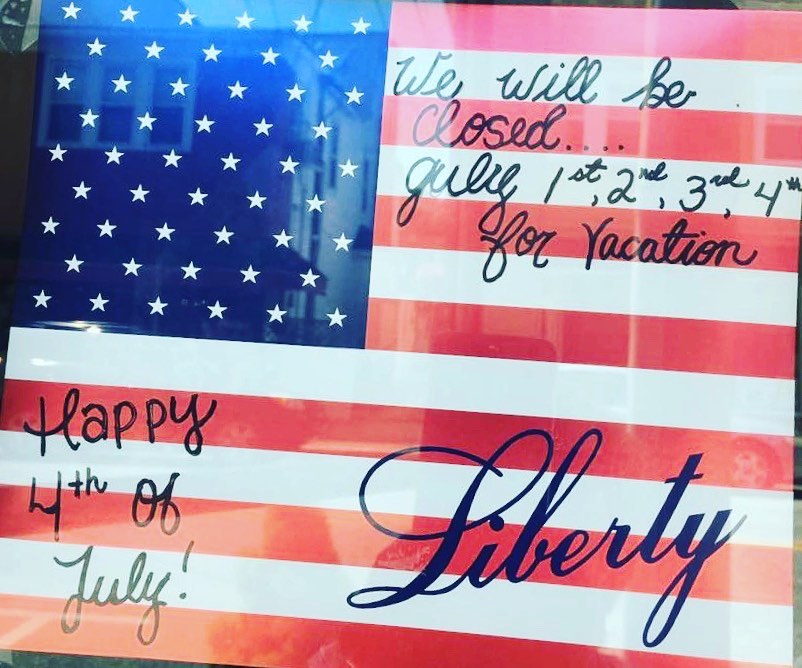 We will be
closed....
july 1st, 2nd, 3rd, 4th
for Vacation
Happy
4th Of
July!
Liberty